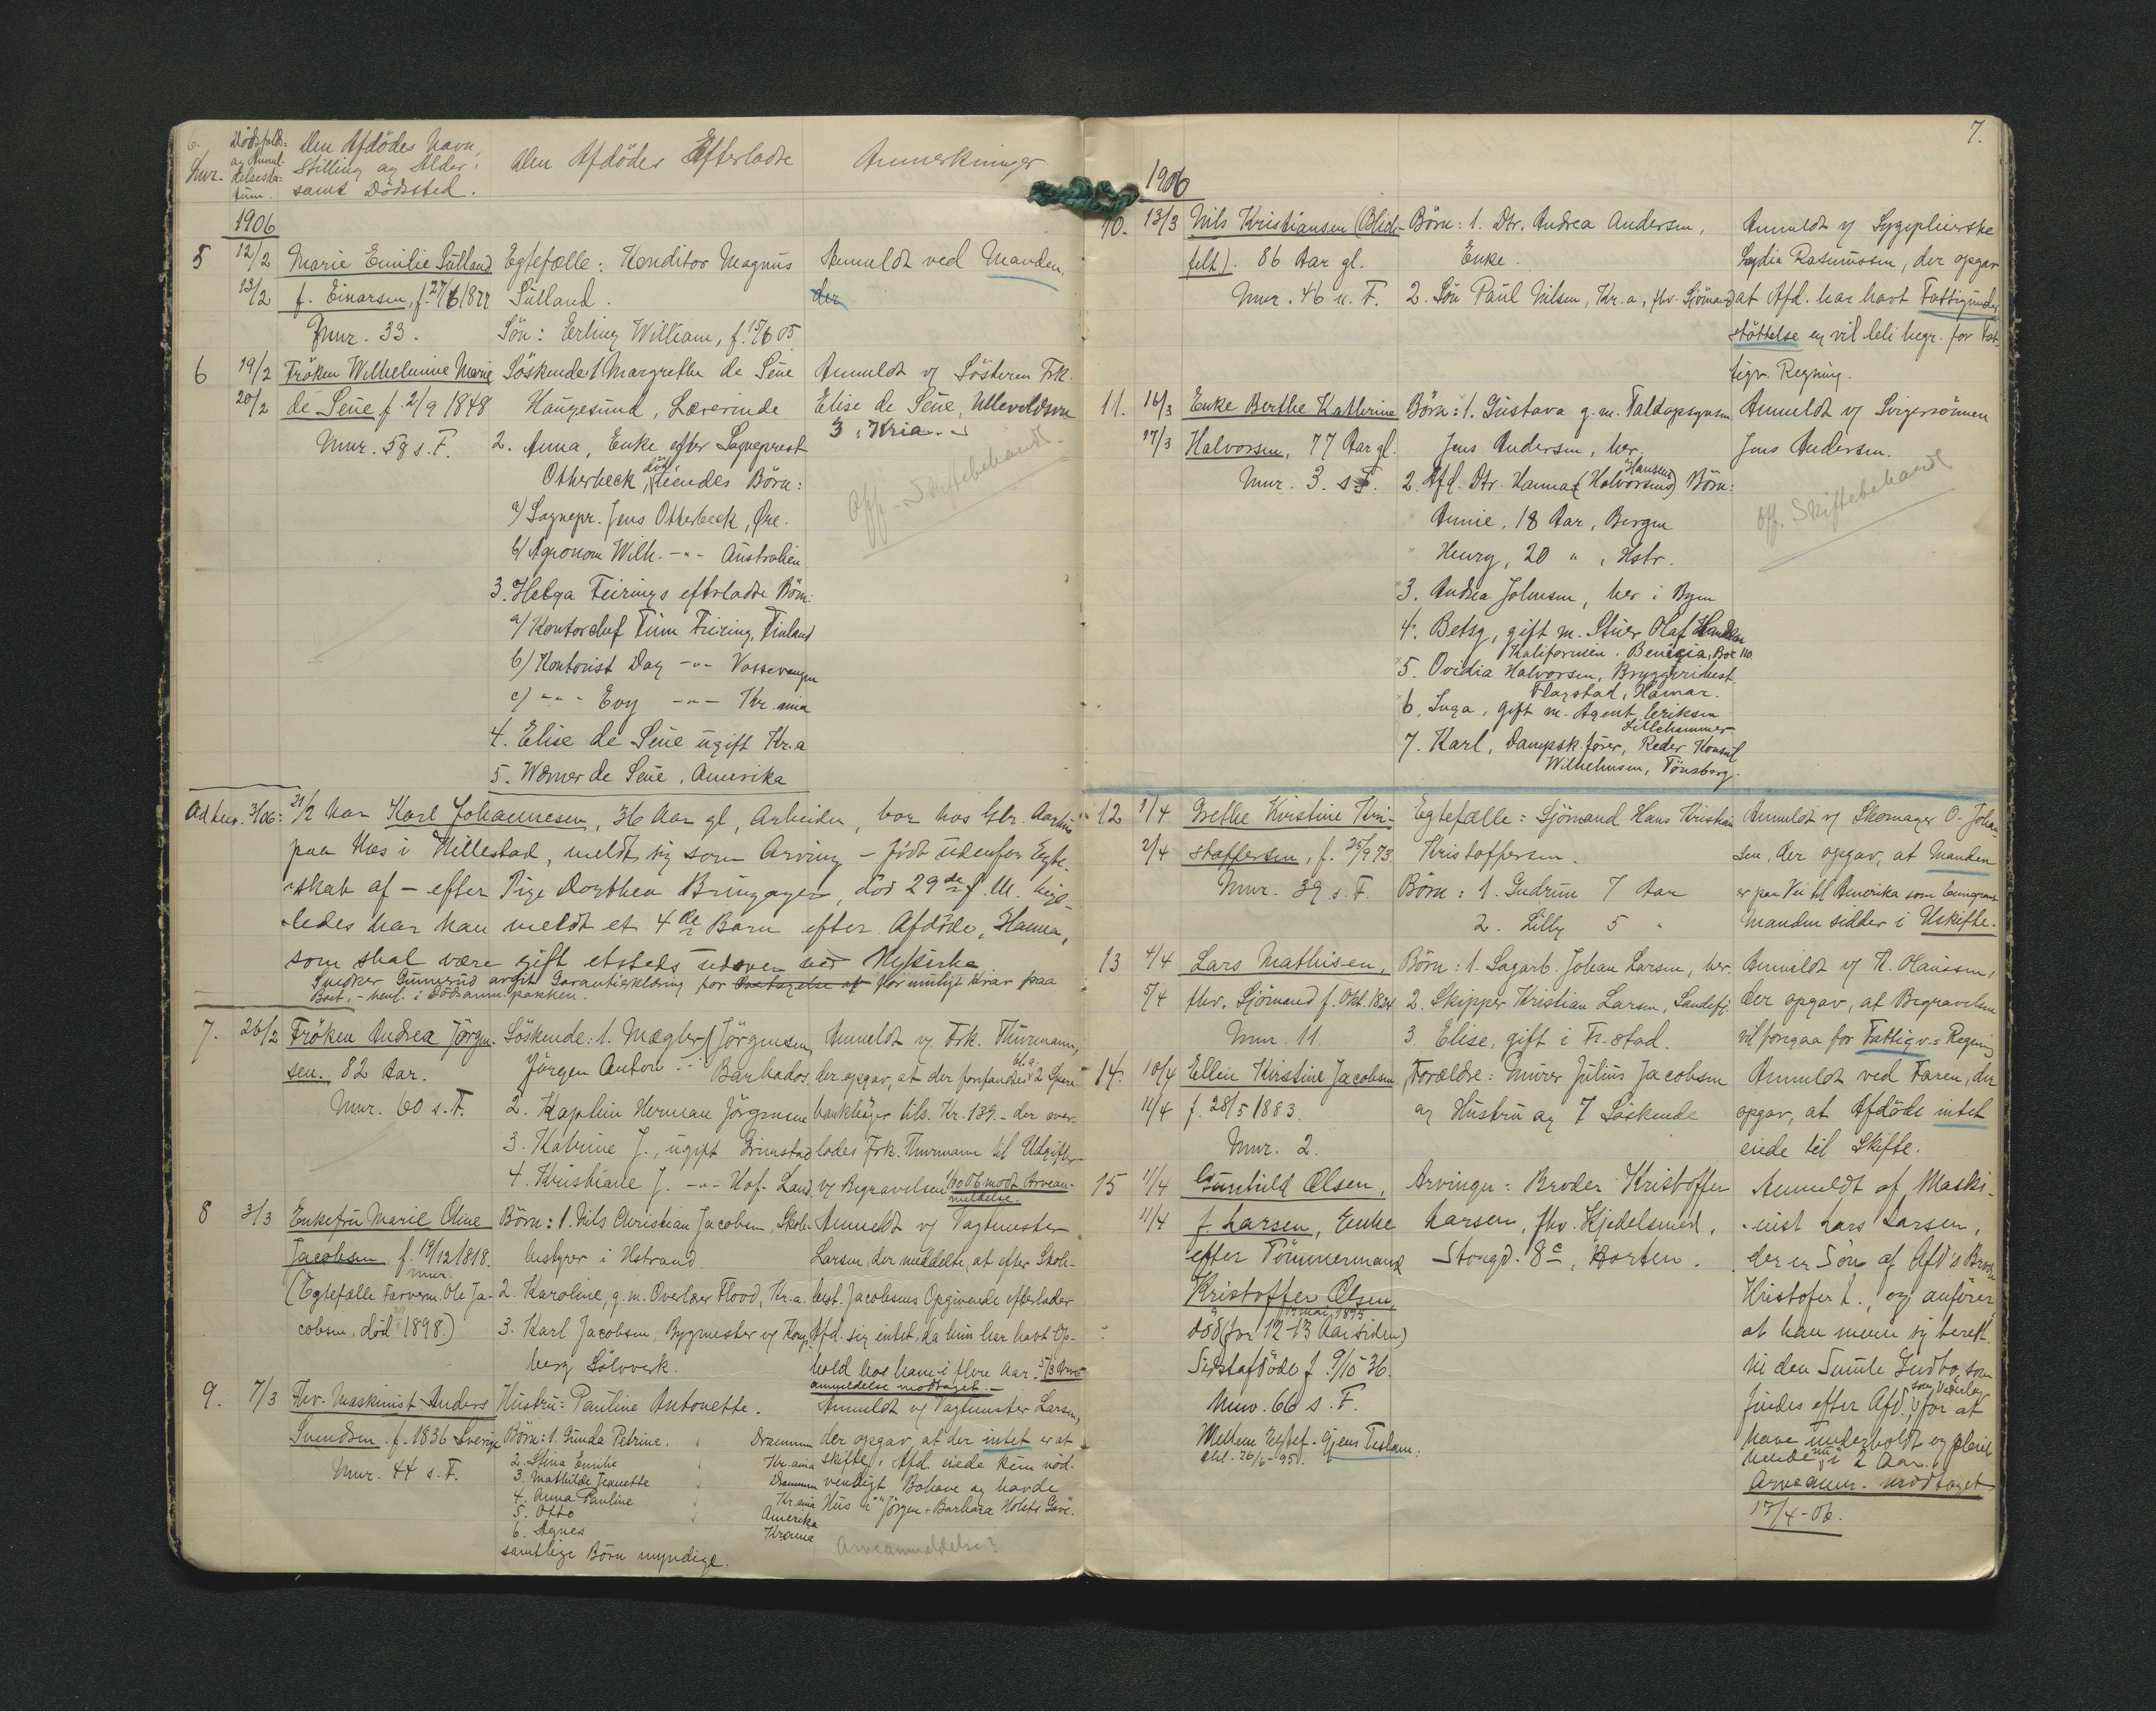 6.
Nur.
Dödsfalds-
og Anmel-
delsesda-
tum.
Den Afdödes Navn,
Stilling og Alder
samt Dödsted.
Den Afdödes Efterladte
Anmerkninger
1906
5
12/2
13/2
Marie Emilie Sülland
f. Einarsen, f. 27/6 1877
Mnr. 33.
Egtefælle: Konditor Magnus
Sülland.
Sön: Erling William, f. 15/6 05
Anmeldt ved Manden,
der
6
19/2
20/2
Fröken Wilhelmine Marie
de Seüe f. 2/9 1848
Mnr. 58 s. F.
Söskende 1 Margrethe de Seüe
Haugesund, Lærerinde
2. Anna, Enke efter Sogneprest
Otherbeck, död
Börn:
a) Sognepr. Jens Otherbeck, Øre.
b) Agronom Wilh. -"- Australien
3. Helga Feirings efterladte Börn:
a) Kontorchef Finn Feiring, Finland
b) Kontorist Dag -"- Vossevangen
c) -"- Evy -"- Kr.ania
4. Elise de Seüe ugift Kr.a
5. Werner de Seüe, Amerika
Anmeldt v/ Sösteren Frk.
Elise de Seüe, Ullevoldsvn
3, Kria.
Off. Skiftebehandl.
Ad Lnr. 3/06:
21/2 har Karl Johannesen, 36 Aar gl, Arbeider, bor hos Gbr.
paa Næs i Hillestad, meldt sig som Arving - födt udenfor Egte-
skab af - efter Pige Dorthea död 29de f. M. Lige-
ledes har han meldt et 4de Barn efter Afdöde, Hanna,
som skal være gift etsteds udover ved Nykirke
Snedker Gunnerud avgit Garantierklæring for Restansen af for muligt Krav paa
Boet, - henl. i Dödsanm. pakken.
7.
26/2
Fröken Andrea Jörgen-
sen. 82 Aar.
Mnr. 60 s. F.
Söskende: 1. Mægler Jörgensen,
Jörgen Anton -"- Barbados.
2. Kaptein Herman Jörgensen
3. Katrine J., ugift Grimstad
4. Kristiane J. -"- Hof. Land
Anmeldt v/ Frk. Thurmann,
der opgav, at der forefandtes bl. a. 2 Spare-
bankbøger tils. Kr. 139.- der over-
lodes Frk. Thurmann til Udgifter
v/ Begravelsen 1/10 06 modt. Arvean-
meldelse.
8
3/3
Enkefru Marie Oline
Jacobsen f. 19/12 1818.
(Egtefælle Farverm. Ole Ja-
cobsen, död 1898.)
Börn: 1. Nils Christian Jacobsen, Skole-
bestyrer i Hstrand.
2. Karoline, g. m. Overlærer Flood, Kr.a.
3. Karl Jacobsen, Bygmester v/ Kongs-
berg Sölvverk.
Anmeldt v/ Vagtmester
Larsen, der meddelte, at efter Skole-
best. Jacobsens Opgivende efterlader
Afd. sig intet, da hun har havt Op-
hold hos ham i flere Aar. 5/3 Arve-
anmeldelse modtaget.-
9.
7/3
Fhv. Maskinist Anders
Svendsen. f. 1836 Sverige
Mnr. 44 s. F.
Hustru: Pauline Antonette.
Börn: 1. Gunda Petrine. Drammen
2. Stina Emilie Kr.ania
3. Mathilde Jeanette Drammen
4. Anna Pauline Kr.ania
5. Otto Amerika
6. Agnes Krania
samtlige Börn myndige.
Anmeldt v/ Vagtmester Larsen,
der opgav at der intet er at
skifte, Afd. eiede kun nöd-
vendigt Bohave og havde
Hus i "Jörgen & Barbara Holsts Gave".
Arveanmeldelse?
7.
1906
10.
13/3
Nils Kristiansen (Blide-
felt). 86 Aar gl.
Mnr. 46 n. F.
Börn: 1. Dtr. Andrea Andersen,
Enke.
2. Sön Paul Nilsen, Kr.a, fhv. Sjömand
Anmeldt v/ Sygepleierske
Lydia Rasmussen, der opgav
at Afd. har havt Fattigunder-
stöttelse og vil bli begr. for Fat-
tigv. Regning.
11.
16/3
17/3
Enke Berthe Kathrine
Halvorsen, 77 Aar gl.
Mnr. 3. s F.
Börn: 1. Gustava g. m. Taldopsynsm.
Jens Andersen, her.
2. Afd. Dtr. Hanna (Halvorsens) Hansens Börn:
Annie, 18 Aar, Bergen
Henry, 20 " , Hstr.
3. Andrea Johnsen, her i Byen
4. Betsy, gift m. Stuer Olaf
Kalifornien. Benicia, Box 110.
5. Ovidia Halvorsen, Bryggeribest.
Flagstad, Hamar.
6. Inga, gift m. Agent Eriksen
Lillehammer
7. Karl, Dampsk. förer, Reder Konsul
Wilhelmsen, Tönsberg.
Anmeldt v/ Svigersönnen
Jens Andersen.
Off. Skiftebehandl
12
1/4
2/4
Grethe Kristine Kri-
stoffersen, f. 25/9 73.
Mnr. 39 s. F.
Egtefælle: Sjömand Hans Kristian
Kristoffersen.
Börn: 1. Gudrun 7 Aar
2. Lilly 5 "
Anmeldt v/ Skomager O. Johan-
sen, der opgav, at Manden
er paa Vei til Amerika som Emigrant
Manden sidder i Uskifte.
13
4/4
5/4
Lars Mathisen,
fhv. Sjömand f. Okt. 1824
Mnr. 11.
Börn: 1. Sagarb. Johan Larsen, her.
2. Skipper Kristian Larsen, Sandefj.
3. Elise, gift i Fr.stad.
Anmeldt v/ N. Hanssen,
der opgav, at Begravelsen
vil foregaa for Fattigv.s Regning
14.
10/4
11/4
Ellen Kirstine Jacobsen,
f. 28/5 1883.
Mnr. 2.
Forældre: Murer Julius Jacobsen
og Hustru og 7 Söskende
Anmeldt ved Faren, der
opgav, at Afdöde intet
eiede til Skifte.
15
11/4
11/4
Gunhild Olsen,
f. Larsen, Enke
efter Tömmermand
Kristoffer Olsen,
död for 12-13 Aar siden)
12 Mai 1895
Sidstafdöde f 9/10 36.
Mnr. 66 s. F.
Mellem Egtef. Gjens. Testam.
dat. 26/6-95.
Arvinger: Broder Kristoffer
Larsen, fhv. Kjedelsmed,
Storgd. 8c, Horten.
Anmeldt af Maski-
nist Lars Larsen,
der er Sön af Afd's Broder
Kristofer L., og anförer
at han mener sig beret.
til den Smule Indbo, som
findes efter Afd., som Vederlag for at
have underholdt og pleiet
hende nu i 2 Aar.
Arveanm. modtaget
17/4-06.